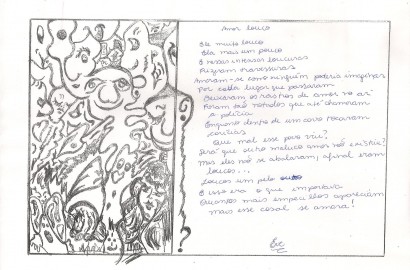 Amor louco
Ele muito louco
Ela mais um pouco
E nessa intensa loucura
Fizeram travessuras
Amaram-se como ninguém poderia imaginar
Por cada lugar que passaram
Deixaram os rastros de amor no ar
Foram tão notados que até chamaram
a polícia
Enquanto dentro de um carro trocaram
carícias
Que mal esse povo viu?
Será que outro maluco amor não existiu?
Mas eles não se abalaram, afinal eram
loucos...
Loucos um pelo outro
E isso era o que importava
Quanto mais empecilhos apareciam
mais esse casal se amava!